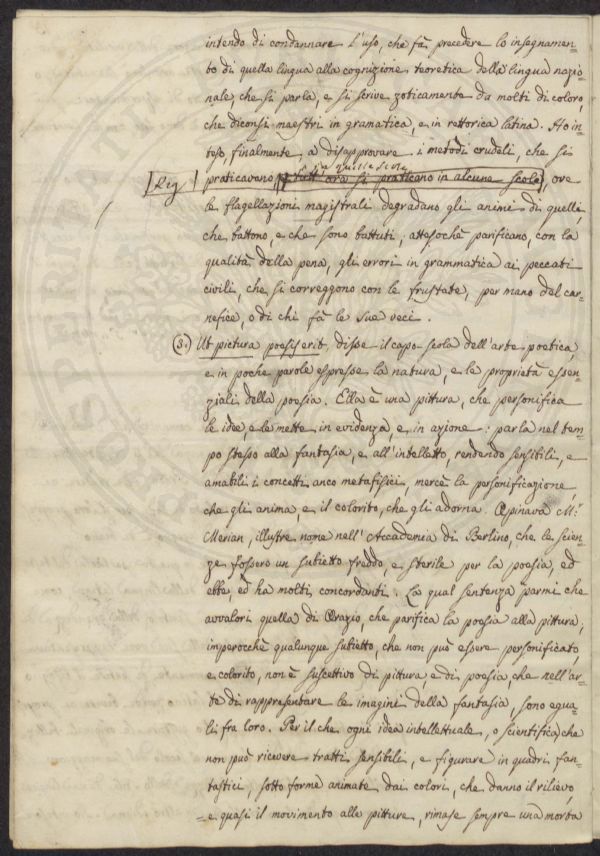 intendo di condannare l'uso, che fà precedere lo insegnamen=
to di quella lingua alla cognizione teoretica della lingua nazio=
nale, che si parla, e si scrive zoticamente da molti di coloro,
che diconsi maestri in gramatica, e in rettorica latina. Ho in=
teso, finalmente, a disapprovare i metodi crudeli, che si
quelle scole
[Reg.] praticavano, e tutt'ora si praticano in alcune scole, ove
le flagellazioni magistrali degradano gli animi di quelli,
che battono, e che sono battuti, attesochè parificano, con la
qualità della pena, gli errori in grammatica ai peccati
civili, che si correggono con le frustate, per mano del car=
nefice, o di chi fà le sue veci.
(3.) Ut pictura poesis erit, disse il capo scola dell'arte poetica,
e in poche parole espresse la natura, e le proprietà essen=
ziali della poesia. Ella è una pittura, che personifica
le idee, e le mette in evidenza, e in azione: parla nel tem=
po stesso alla fantasia, e all'intelletto, rendendo sensibili, e
amabili i concetti anco metafisici, mercè la personificazione,
che gli anima, e il colorito, che gli adorna. Opinava M.r
Merian, illustre nome nell'Accademia di Berlino, che le scien=
ze fossero un subietto freddo, e sterile per la poesia, ed
ebbe, ed ha molti concordanti. La qual sentenza parmi che
avvalori quella di Orazio, che parifica la poesia alla pittura,
imperocchè qualunque subietto, che non può essere personificato,
e colorito, non è suscettivo di pittura, e di poesia, che nell'ar=
te di rappresentare le imagini della fantasia, sono egua=
li fra loro. Per il che ogni idea intellettuale, o scientifica, che
non può ricevere tratti sensibili, e figurare in quadri fan=
tastici, sotto forme animate dai colori, che danno il rilievo,
e quasi il movimento alle pitture, rimase sempre una morta